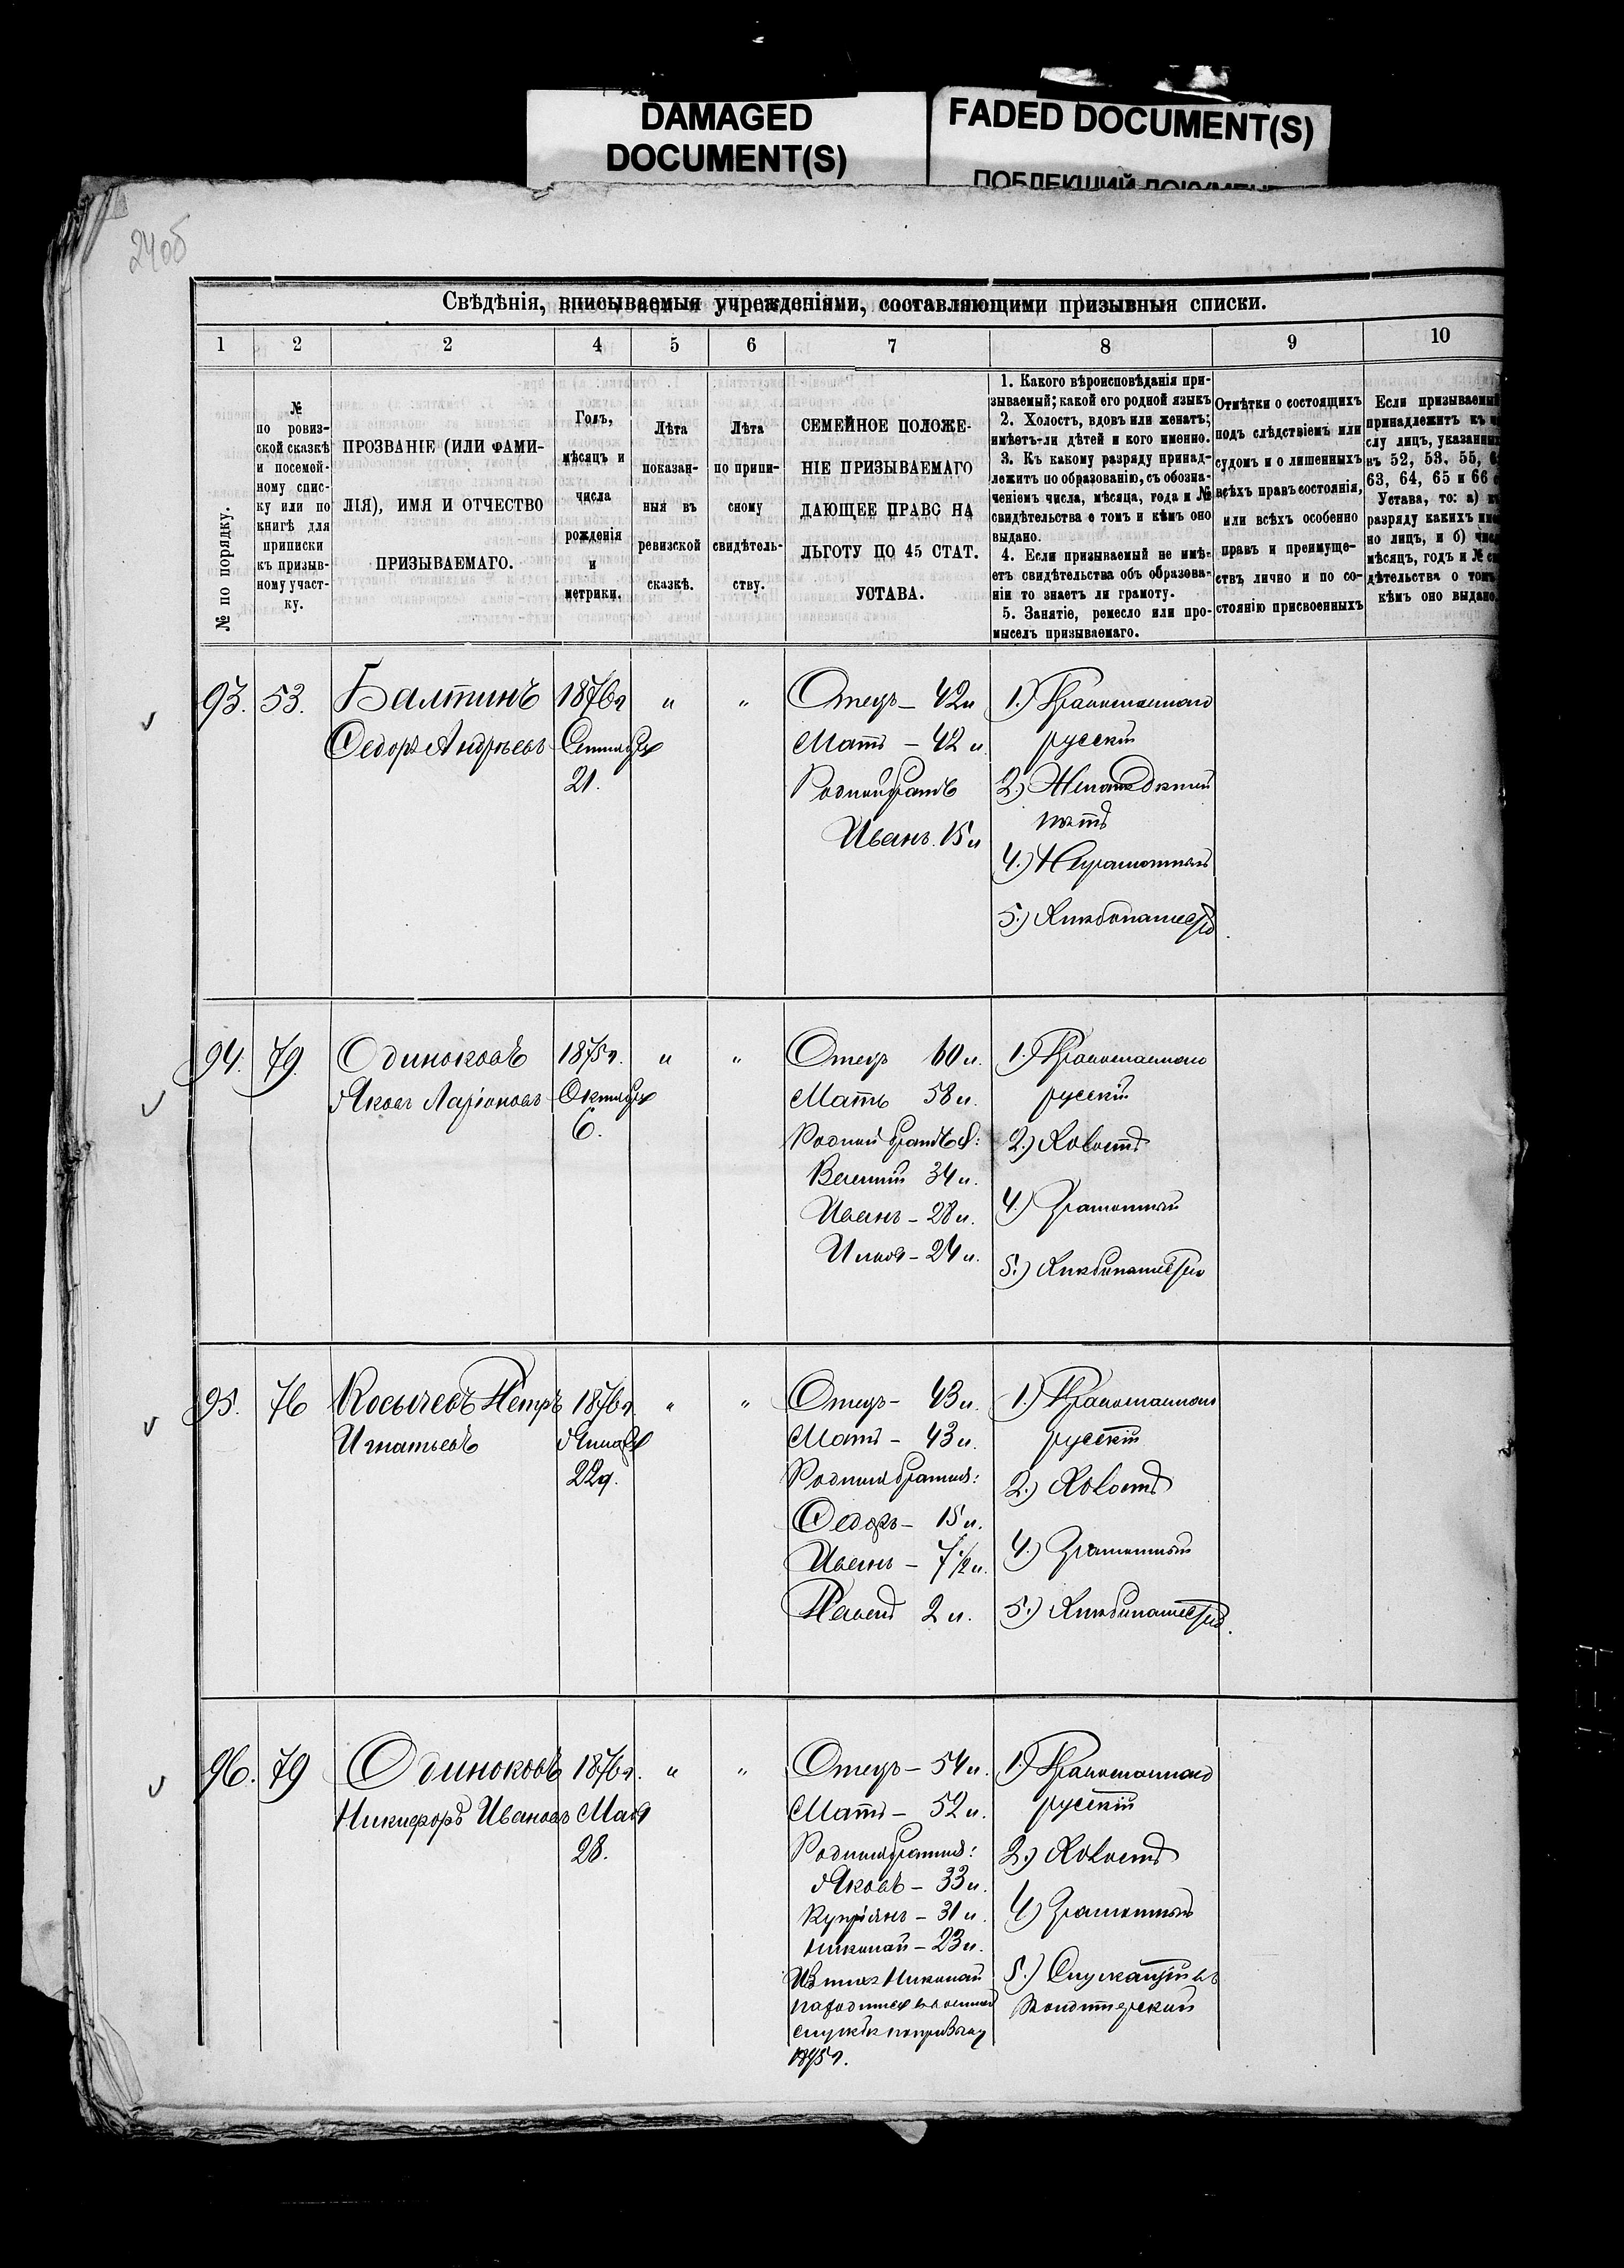 DAMAGED
DOCUMENT(S)
FADED DOCUMENT(S)
ПОБЛЕКШИЙ ДОКУМЕНТ
240б
Свѣдѣнія, вписываемыя учрежденіями, составляющими призывныя списки.
1 2 2 4 5 6 7 8 9 10
№ по порядку.
№
по ровиз-
ской сказкѣ
и посемей-
ному спис-
ку или по
книгѣ для
приписки
къ призыв-
ному участ-
ку.
ПРОЗВАНІЕ (ИЛИ ФАМИ-
ЛІЯ), ИМЯ И ОТЧЕСТВО
ПРИЗЫВАЕМАГО.
Годъ,
мѣсяцъ и
числа
рожденія
и
метрики.
Лѣта
показан-
ныя въ
ревизской
сказкѣ.
Лѣта
по припи-
сному
свидѣтель-
ству.
СЕМЕЙНОЕ ПОЛОЖЕ-
НІЕ ПРИЗЫВАЕМАГО
ДАЮЩЕЕ ПРАВО НА
ЛЬГОТУ ПО 45 СТАТ.
УСТАВА.
1. Какого вѣроисповѣданія при-
зываемый; какой его родной языкъ
2. Холостъ, вдовъ или женатъ;
имѣетъ-ли дѣтей и кого именно.
3. Къ какому разряду принад-
лежитъ по образованію, съ обозна-
ченіемъ числа, мѣсяца, года и №
свидѣтельства о томъ и кѣмъ оно
выдано.
4. Если призываемый не имѣ-
етъ свидѣтельства объ образова-
ніи то знаетъ ли грамоту.
5. Занятіе, ремесло или про-
мыселъ призываемаго.
Отмѣтки о состоящихъ
подъ слѣдствіемъ или
судомъ и о лишенныхъ
всѣхъ правъ состоянія,
или всѣхъ особенно
правъ и преимуще-
ствъ лично и по со-
стоянію присвоенныхъ
Если призываемый
принадлежитъ къ
слу лицъ, указанныхъ
въ 52, 53, 55,
63, 64, 65 и 66
Устава, то: а)
разряду какихъ
но лицъ, и б)
мѣсяцъ, годъ и №
дѣтельства о томъ
кѣмъ оно выдано.
93. 53. Балтинъ
Ѳедоръ Андреевъ
1876г
Сентября
21.
" "
Отецъ – 42 л
Мать – 42 л.
Родной братъ
Иванъ. 15 л
1.) Православнаго
русскій
2.) Женатъ дѣтей
нѣтъ
4.) Неграмотный
5.) Хлѣбопашество.
94. 79. Одиноковъ
Яковъ Ларіоновъ
1875г.
Октября
6.
" "
Отецъ 60 л.
Мать 58 л.
Родной братья:
Василій 34 л.
Иванъ – 28 л.
Илья – 24 л.
1.) Православнаго
русскій
2.) Холостъ
4.) Грамотный
5.) Хлѣбопашество
95. 76 Косычевъ Петръ
Игнатьевъ
1876г.
Января
22д.
" "
Отецъ – 43 л.
Мать – 43 л.
Родные братья:
Ѳедоръ – 15 л.
Иванъ – 7 1/2 л.
Павелъ 2 л.
1.) Православнаго
русскій
2.) Холостъ
4.) Грамотный
5.) Хлѣбопашество.
96. 79 Одиноковъ
Никифоръ Ивановъ
1876г.
Мая
28.
" "
Отецъ – 54 л.
Мать – 52 л.
Родные братья:
Яковъ – 33 л.
Купріянъ – 31 л.
Николай – 23 л.
Изъ нихъ Николай
находится въ военной
службѣ по призыву
1895г.
1.) Православнаго
русскій
2.) Холостъ
4.) Грамотный
5.) Служащій въ
кондитерской